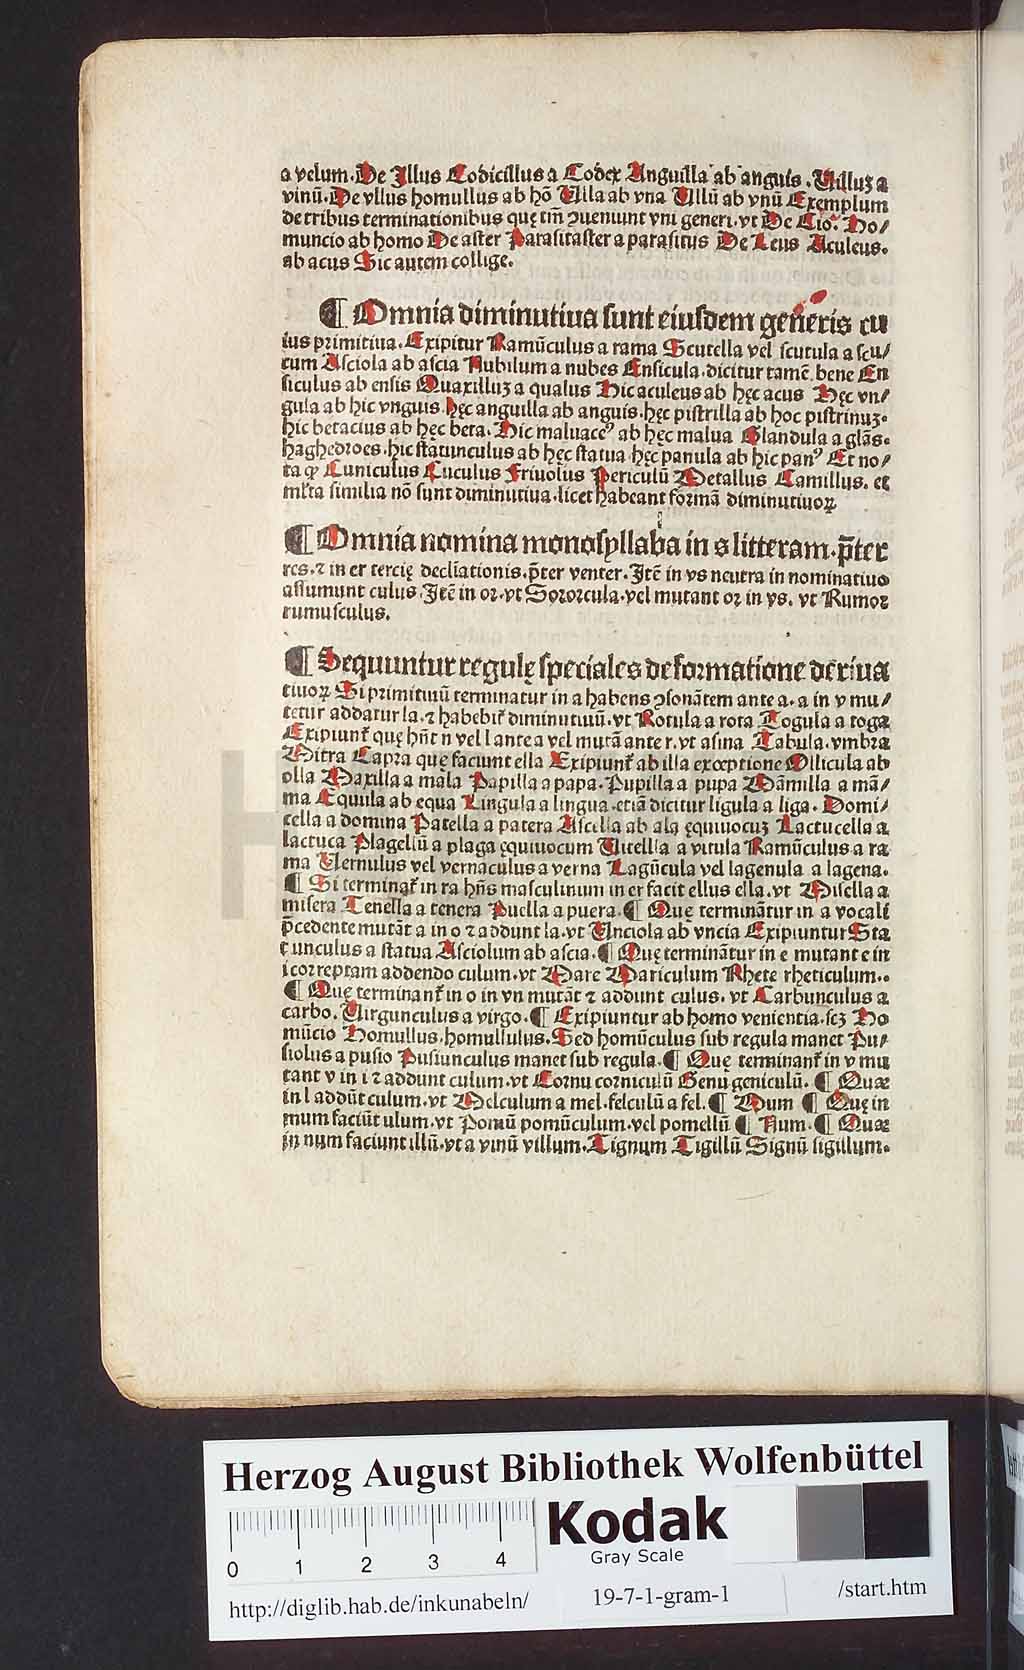 a velum. De Illus Codicillus a Codex Anguilla ab anguis. Villuꝫ a
vinū. De vllus homullus ab hō Vlla ab vna Vllū ab vnū Exemplum
de tribus terminationibus quę tm̄ ↄueniunt vni generi. vt De Cio. Ho/
muncio ab homo De aster Parasitaster a parasitus De Leus Aculeus.
ab acus Sic autem collige.
¶ Omnia diminutiua sunt eiusdem generis cu
ius primitiua. Exipitur Ramūculus a rama Scutella vel scutula a scu/
tum Asciola ab ascia Nubilum a nubes Ensicula. dicitur tamē bene En
siculus ab ensis Quaxilluꝫ a qualus Hic aculeus ab hęc acus Hęc vn/
gula ab hic vnguis. hęc anguilla ab anguis. hęc pistrilla ab hoc pistrinuꝫ.
hic betacius ab hęc beta. Hic maluaceꝰ ab hęc malua Glandula a glās.
haghedroes. hic statunculus ab hęc statua hęc panula ab hic panꝰ Et no/
ta ꝙ Cuniculus Cuculus Friuolus Periculū Metallus Camillus. et
ml'ta similia nō sunt diminutiua. licet habeant formā diminutiuoꝝ
¶ Omnia nomina monosyllaba in s litteram. p̄ter
res. ⁊ in er tercię decliationis. p̄ter venter. Itē in vs neutra in nominatiuo
assumunt culus. Itē in or. vt Sororcula. vel mutant or in vs. vt Rumor
rumusculus.
¶ Sequuntur regulę speciales de formatione deriua
tiuoꝝ Si primitiuū terminatur in a habens ↄsonātem ante a. a in v mu/
tetur addatur la. ⁊ habebit᷑ diminutiuū. vt Rotula a rota Togula a toga
Exipiunt᷑ quę hn̄t n vel l ante a vel mutā ante r. vt asina Tabula. vmbra
Mitra Capra que faciunt ella Exipiunt᷑ ab illa exceptione Ollicula ab
olla Maxilla a mala Papilla a papa. Pupilla a pupa Māmilla a mā/
ma Equula ab equa Lingula a lingua. etiā dicitur ligula a liga. Domi/
cella a domina Patella a patera Ascella ab ala ęquiuocuꝫ Lactucella a
lactuca Plagellū a plaga ęquiuocum Vitella a vitula Ramūculus a ra
ma Vernulus vel vernaculus a verna Lagūcula vel lagenula a lagena.
¶ Si terminat᷑ in ra hn̄s masculinum in er facit ellus ella. vt Misella a
misera Tenella a tenera Puella a puera. ¶ Quę terminātur in a vocali
p̄cedente mutāt a in o ⁊ addunt la. vt Unciola ab vncia Exipiuntur Sta
tunculus a statua Asciolum ab ascia. ¶ Quę terminātur in e mutant e in
i correptam addendo culum. vt Mare Mariculum Rhete rheticulum..
¶ Quę terminant᷑ in o in vn mutāt ⁊ addunt culus. vt Carbunculus a
carbo. Virgunculus a virgo. ¶ Exipiuntur ab homo venientia. scꝫ Ho
mūcio Homullus. homullulus. Sed homūculus sub regula manet Pu/
siolus a pusio Pusiunculus manet sub regula. ¶ Quę terminant᷑ in v mu
tant v in i ⁊ addunt culum. vt Cornu corniculū Genu geniculū. ¶ Quæ
in l addūt culum. vt Melculum a mel. felculū a fel. ¶ Mum ¶ Quę in
mum faciūt ulum. vt Pomū pomūculum. vel pomellū ¶ Num. ¶ Quæ
in num faciunt illū. vt a vinū villum. Tignum Tigillū Signū sigillum.
HAB
Herzog August Bibliothek Wolfenbüttel
0 1 2 3 4
Kodak
Gray Scale
http://diglib.hab.de/inkunabeln/ 19-7-1-gram-1 /start.htm